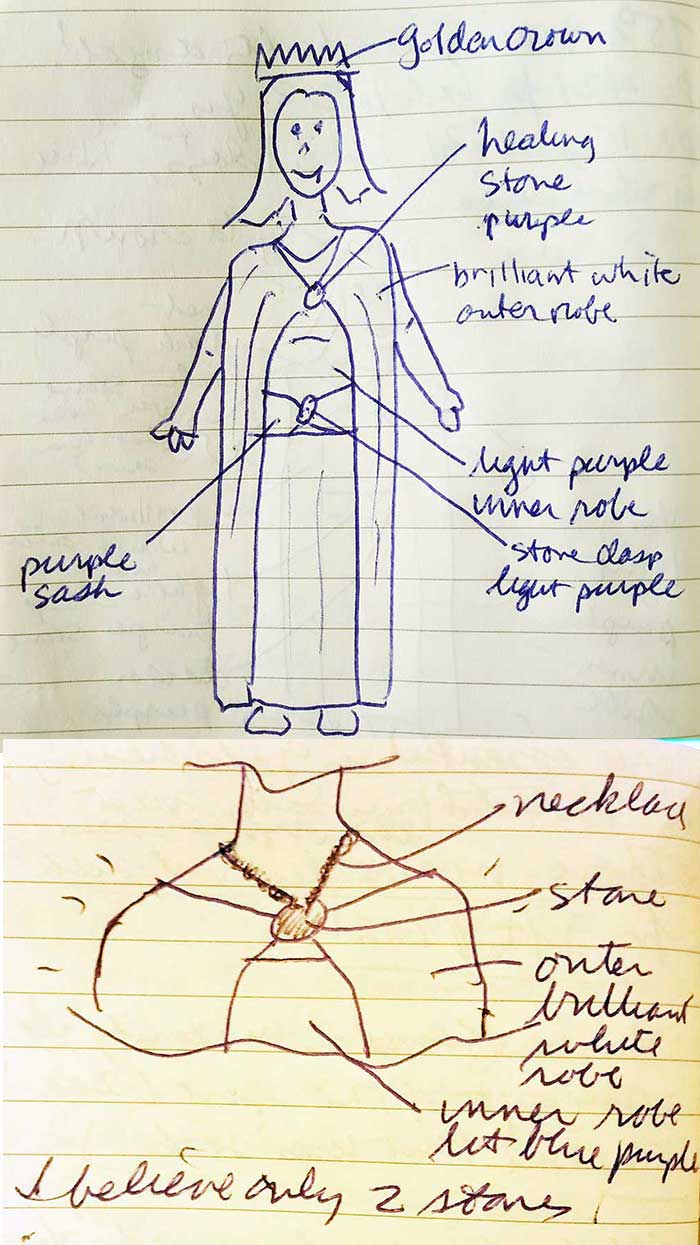 golden crown
healing
stone
purple
brilliant white
outer robe
light purple
inner robe
stone clasp
light purple
purple
sash
necklac
stone
outer
brilliant
white
robe
inner robe
lit blue purple
I believe only 2 stones